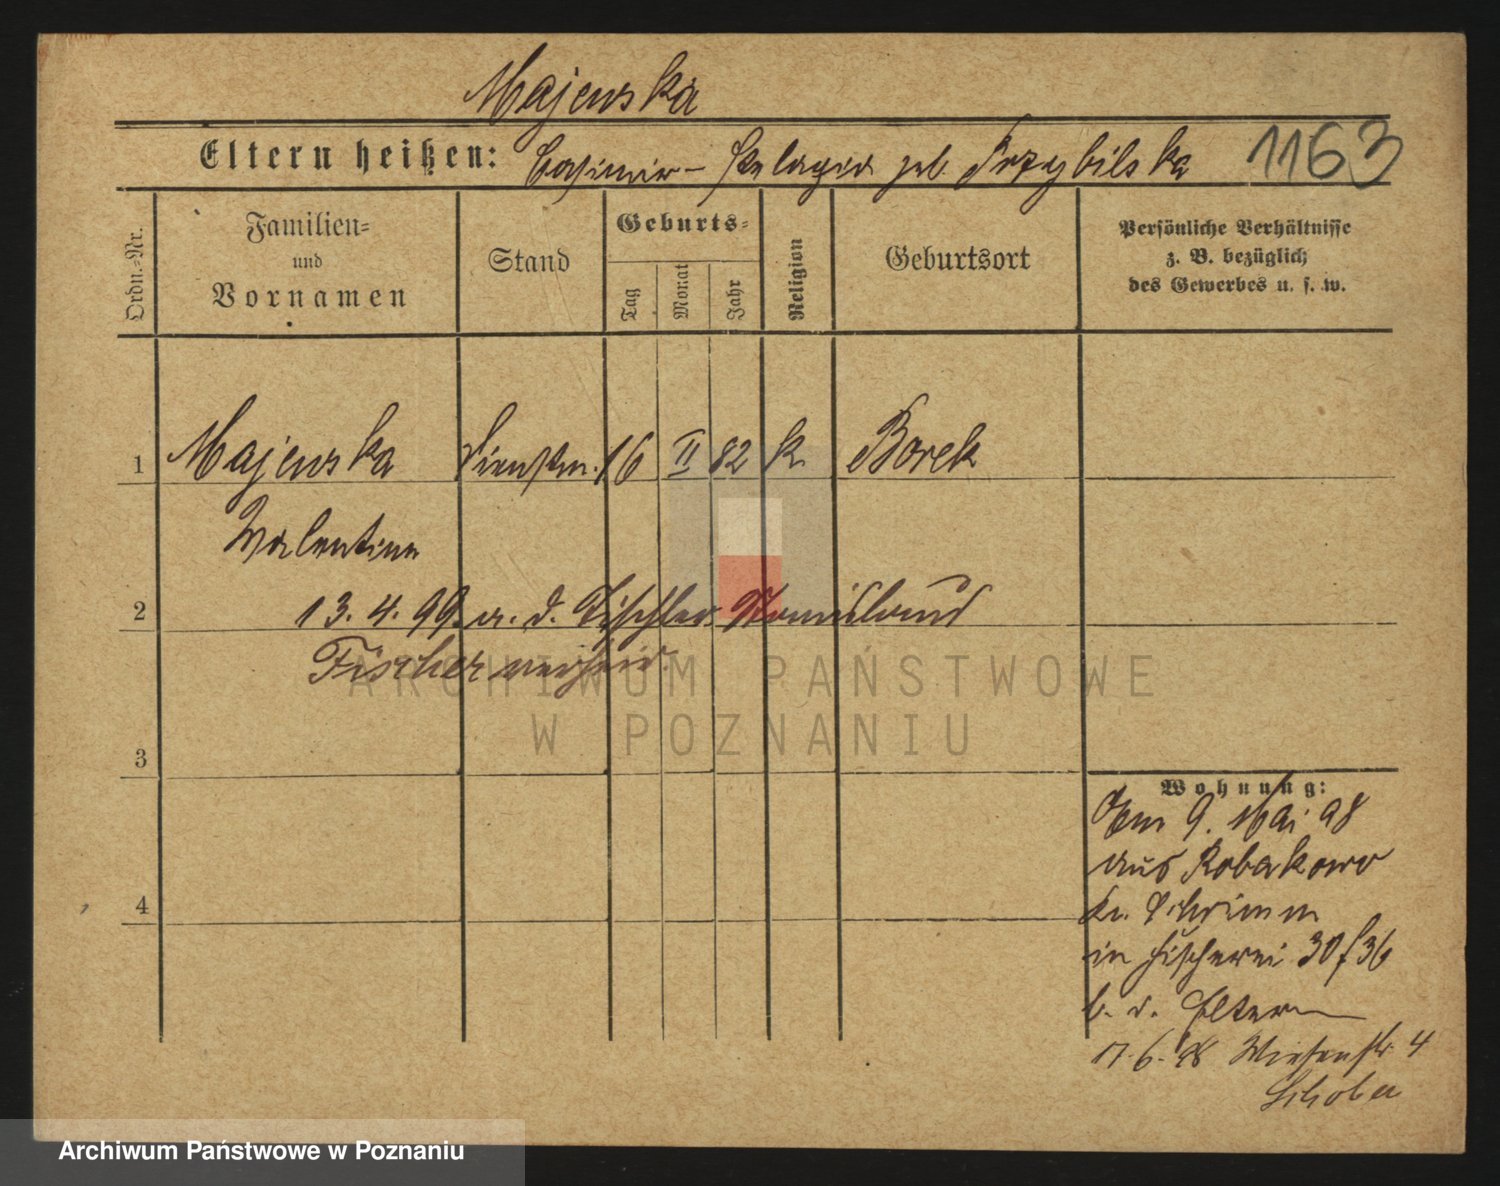 Majewska
Eltern heißen: Casimir - Pelagia geb. Przybilska 1163
Ordn.-Nr.
Familien-
und
Vornamen
Stand
Geburts-
Tag
Monat
Jahr
Religion
Geburtsort
Persönliche Verhältnisse
z. B. bezüglich
des Gewerbes u. s. w.
1 Majewska Dienstm. 16 II 82 k. Borek
Valentina
2 13. 4. 99 a. d. Tischler Stanislaus
Fischer verheir.
3
Wohnung:
Am 9. Mai 98
aus Robakowo
4 Kr. Schrimm
in Fischerei 30 / 36
b. d. Eltern
17. 6. 98 Wiesenstr. 4
ARCHIWUM PAŃSTWOWE
W POZNANIU
Archiwum Państwowe w Poznaniu